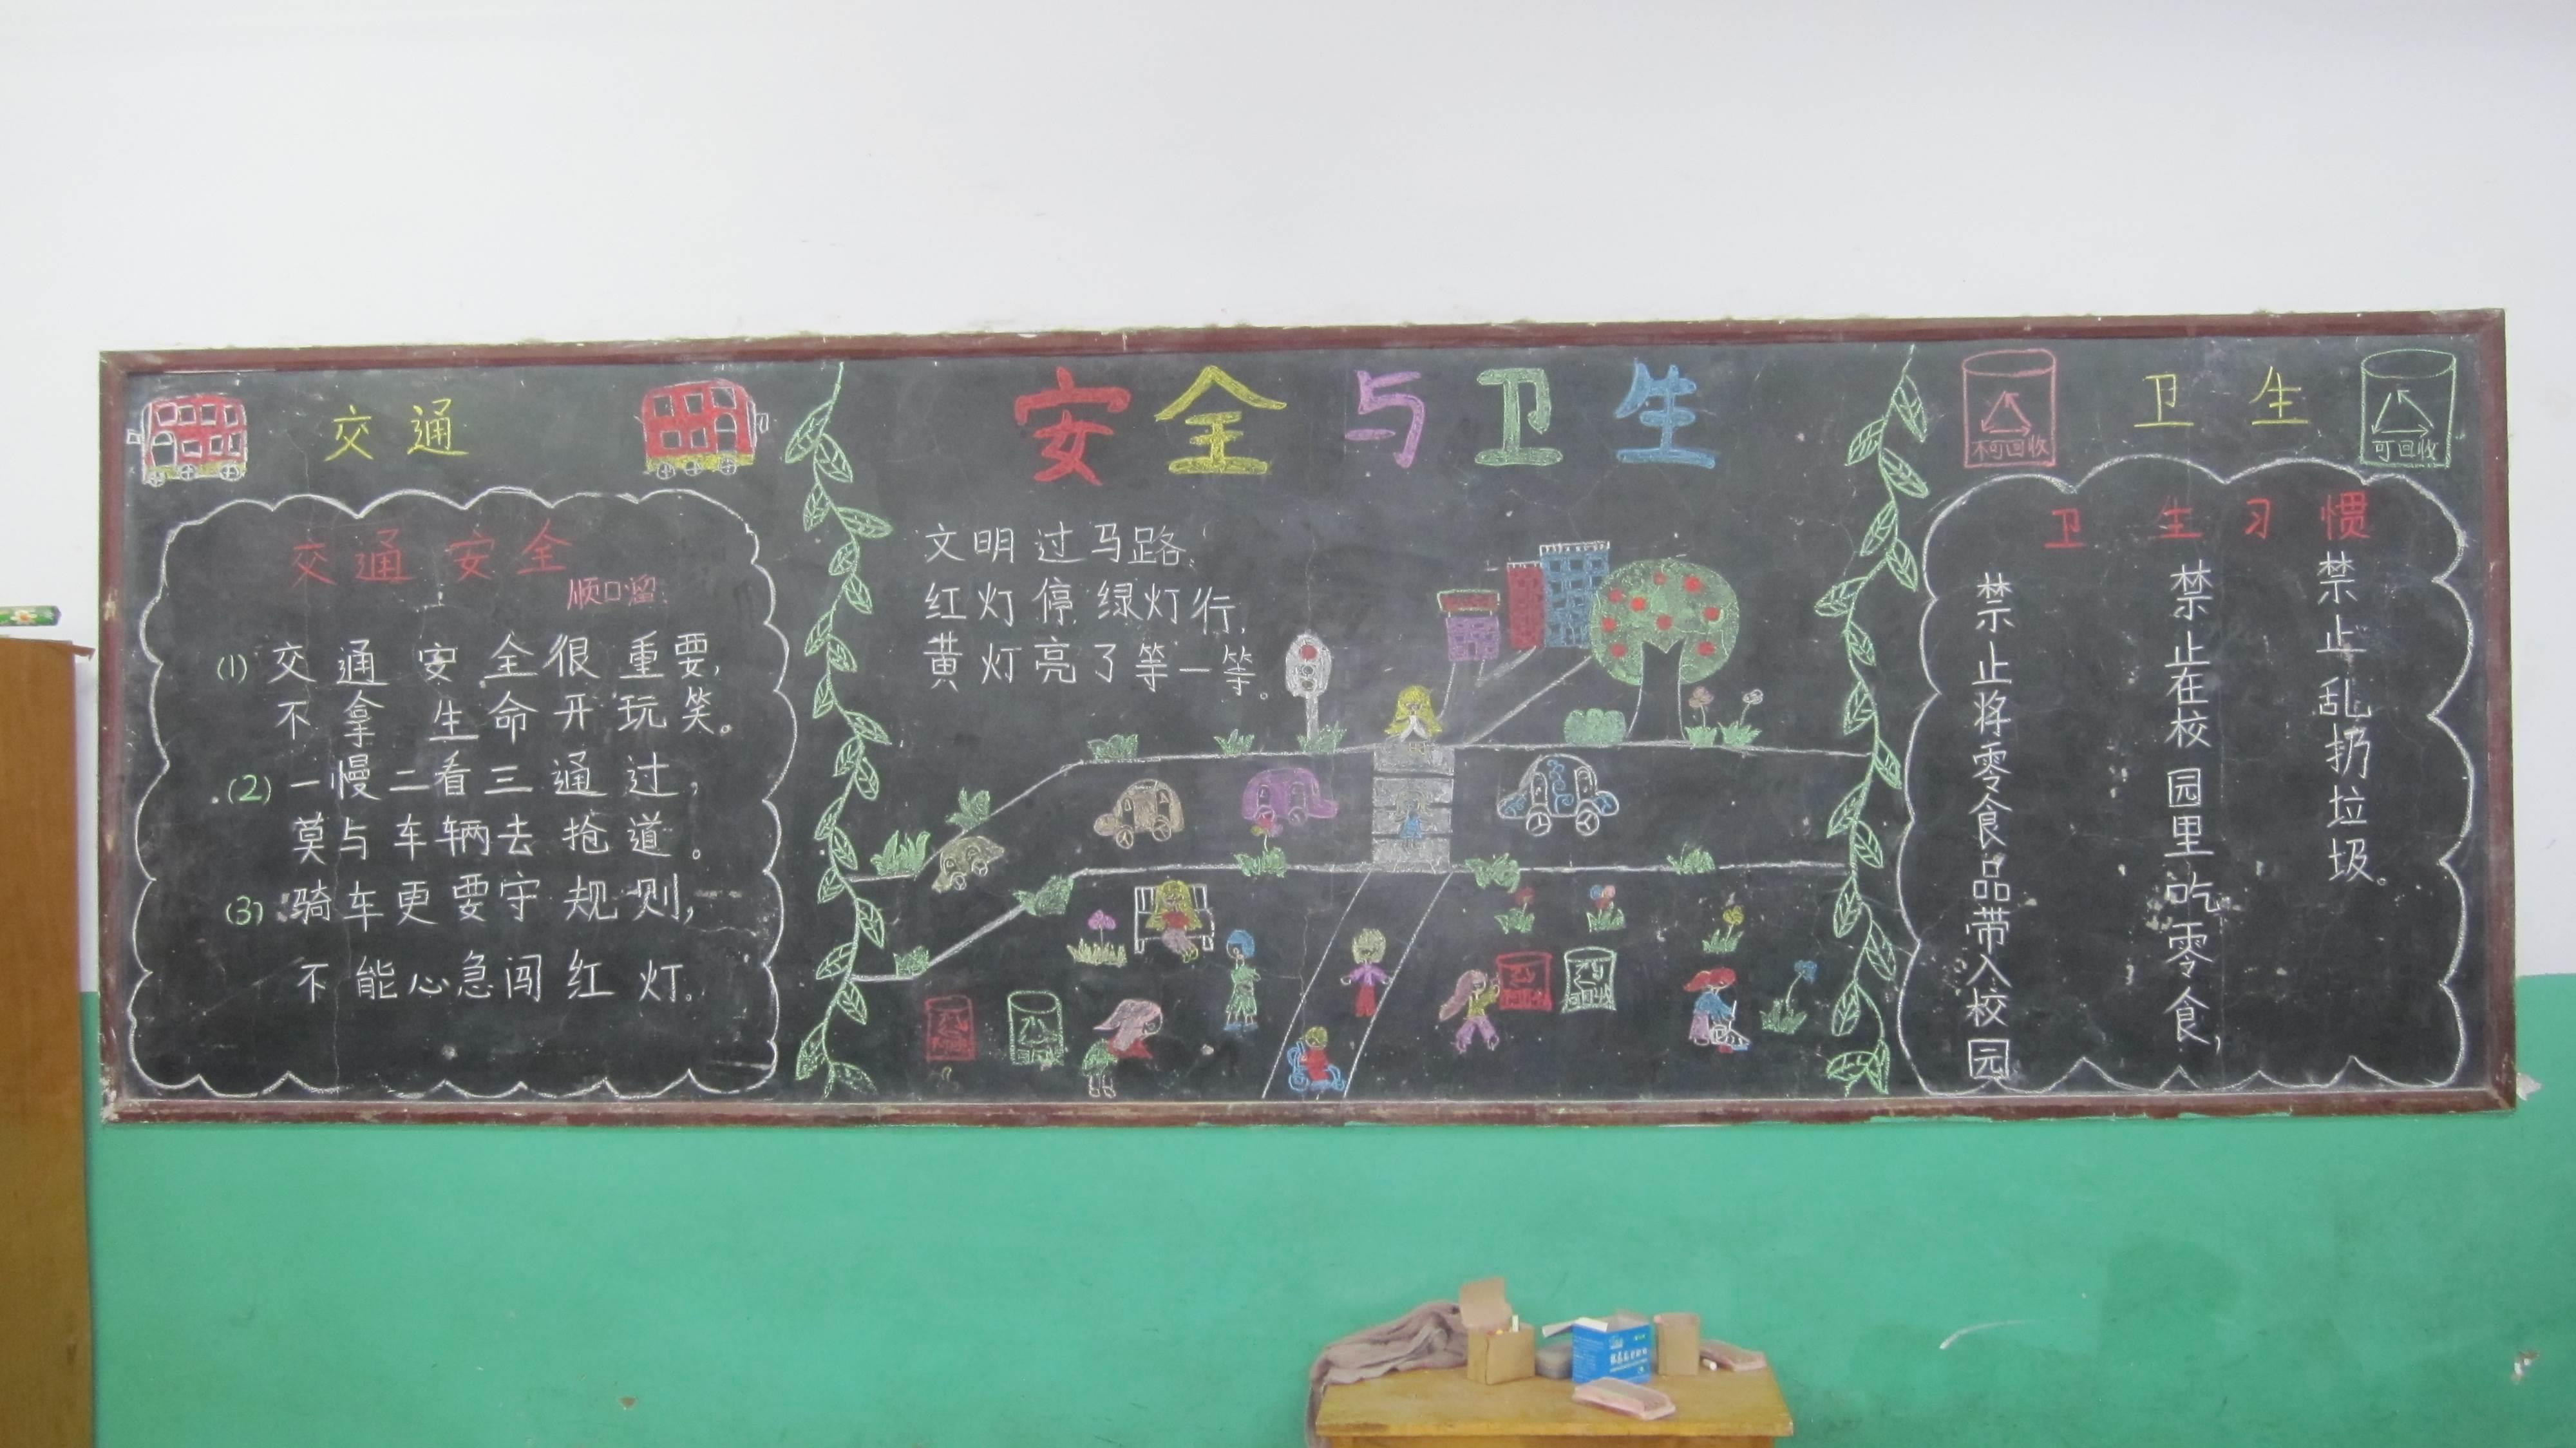 交通
安全与卫生
卫生
不可回收
可回收
交通安全
顺口溜
(1) 交通安全很重要,
不拿生命开玩笑。
(2) 一慢二看三通过,
莫与车辆去抢道。
(3) 骑车更要守规则,
不能心急闯红灯。
文明过马路,
红灯停绿灯行,
黄灯亮了等一等。
卫生习惯
禁止乱扔垃圾。
禁止在校园里吃零食,
禁止将零食品带入校园